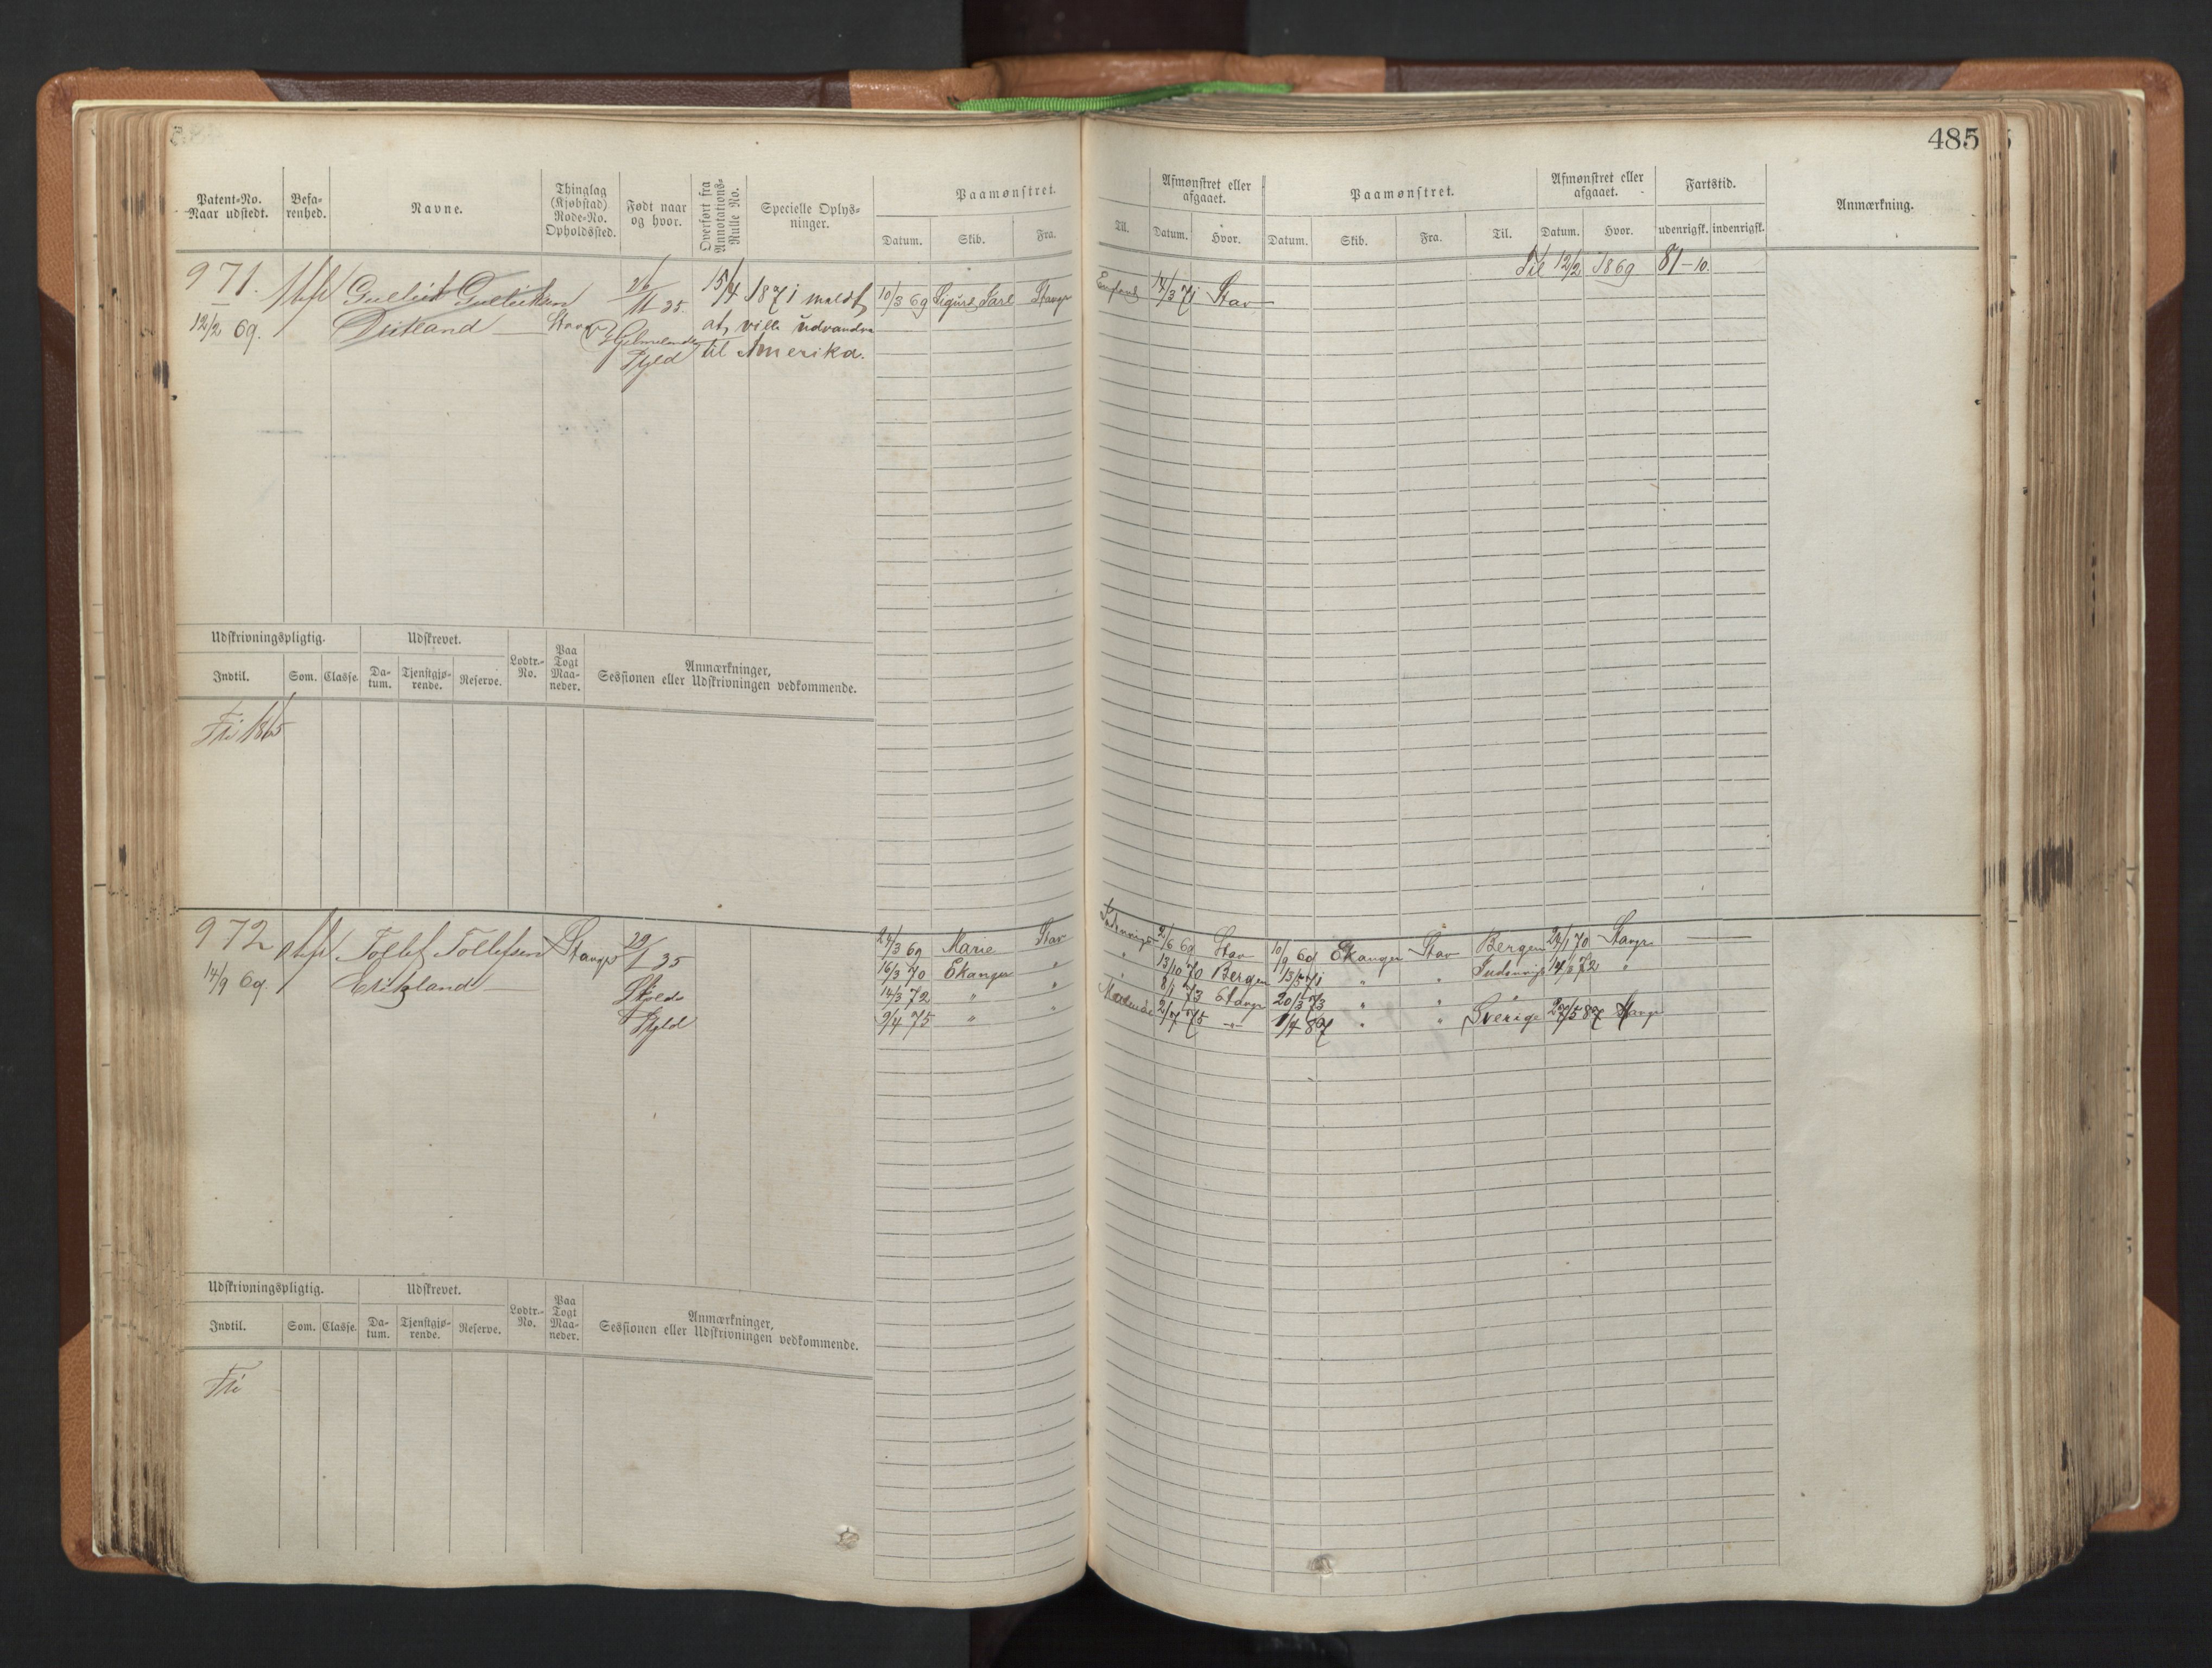 485
Patent-No.
Naar udstedt.
Befa-
renhed.
Navne.
Thinglag
(Kjøbstad)
Rode-No.
Opholdssted.
Født naar
og hvor.
Overført fra
Annotations-
Rulle No.
Specielle Oplys-
ninger.
Paamønstret.
Datum. Skib. Fra.
Til.
Afmønstret eller
afgaaet.
Datum. Hvor.
Paamønstret.
Datum. Skib. Fra. Til.
Afmønstret eller
afgaaet.
Datum. Hvor.
Fartstid.
udenrigsk. indenrigsk.
Anmærkning.
Til 12/2 1869 81-10.
971.
12/2 69.
Gullik Gulliksen
Stav
26/11 35.
Hjelmelands
Skjld
15/4 1871 meldt,
at ville udvandre
til Amerika.
10/3 69 Sigurd Jarl Stavgr
England 14/3 71 Stav
Udskrivningspligtig.
Indtil. Som. Classe.
Udskrevet.
Da-
tum.
Tjenstgjø-
rende.
Reserve.
Lodtr.-
No.
Paa
Togt
Maa-
neder.
Anmærkninger,
Sessionen eller Udskrivningen vedkommende.
Fri 1865
972
14/9 69.
Tollef Tollefsen
Stavgr
29/1 35
Skjolds
Skjld
24/3 69 Marie Stav
Indenrigs 2/6 69 Stav 10/9 69 Ekanger Stav Bergen 24/1 70 Stavgr
16/3 70 Ekanger "
" 13/10 70 Bergen 13/5 71 " " Indenrigs 14/2 72 "
14/3 72 " "
" 8/1 73 Stavgr 20/3 73 " "
9/4 75 " "
2/7 75 -"- 1/4 87 " " Sverige 27/5 87 Stavgr
Udskrivningspligtig.
Indtil. Som. Classe.
Udskrevet.
Da-
tum.
Tjenstgjø-
rende.
Reserve.
Lodtr.-
No.
Paa
Togt
Maa-
neder.
Anmærkninger,
Sessionen eller Udskrivningen vedkommende.
Fri